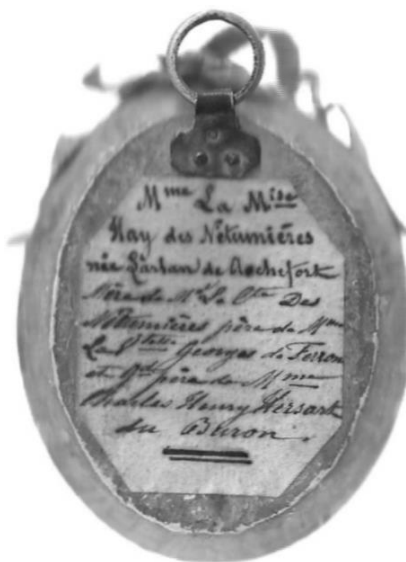 Mme La Mise
Hay des Nétumières
née Larlan de Rochefort
Mère de Mr Le Cte Des
Nétumières père de Mme
La Ctesse Georges de Ferron
et Gd père de Mme
Charles Henry Hersart
du Buron.